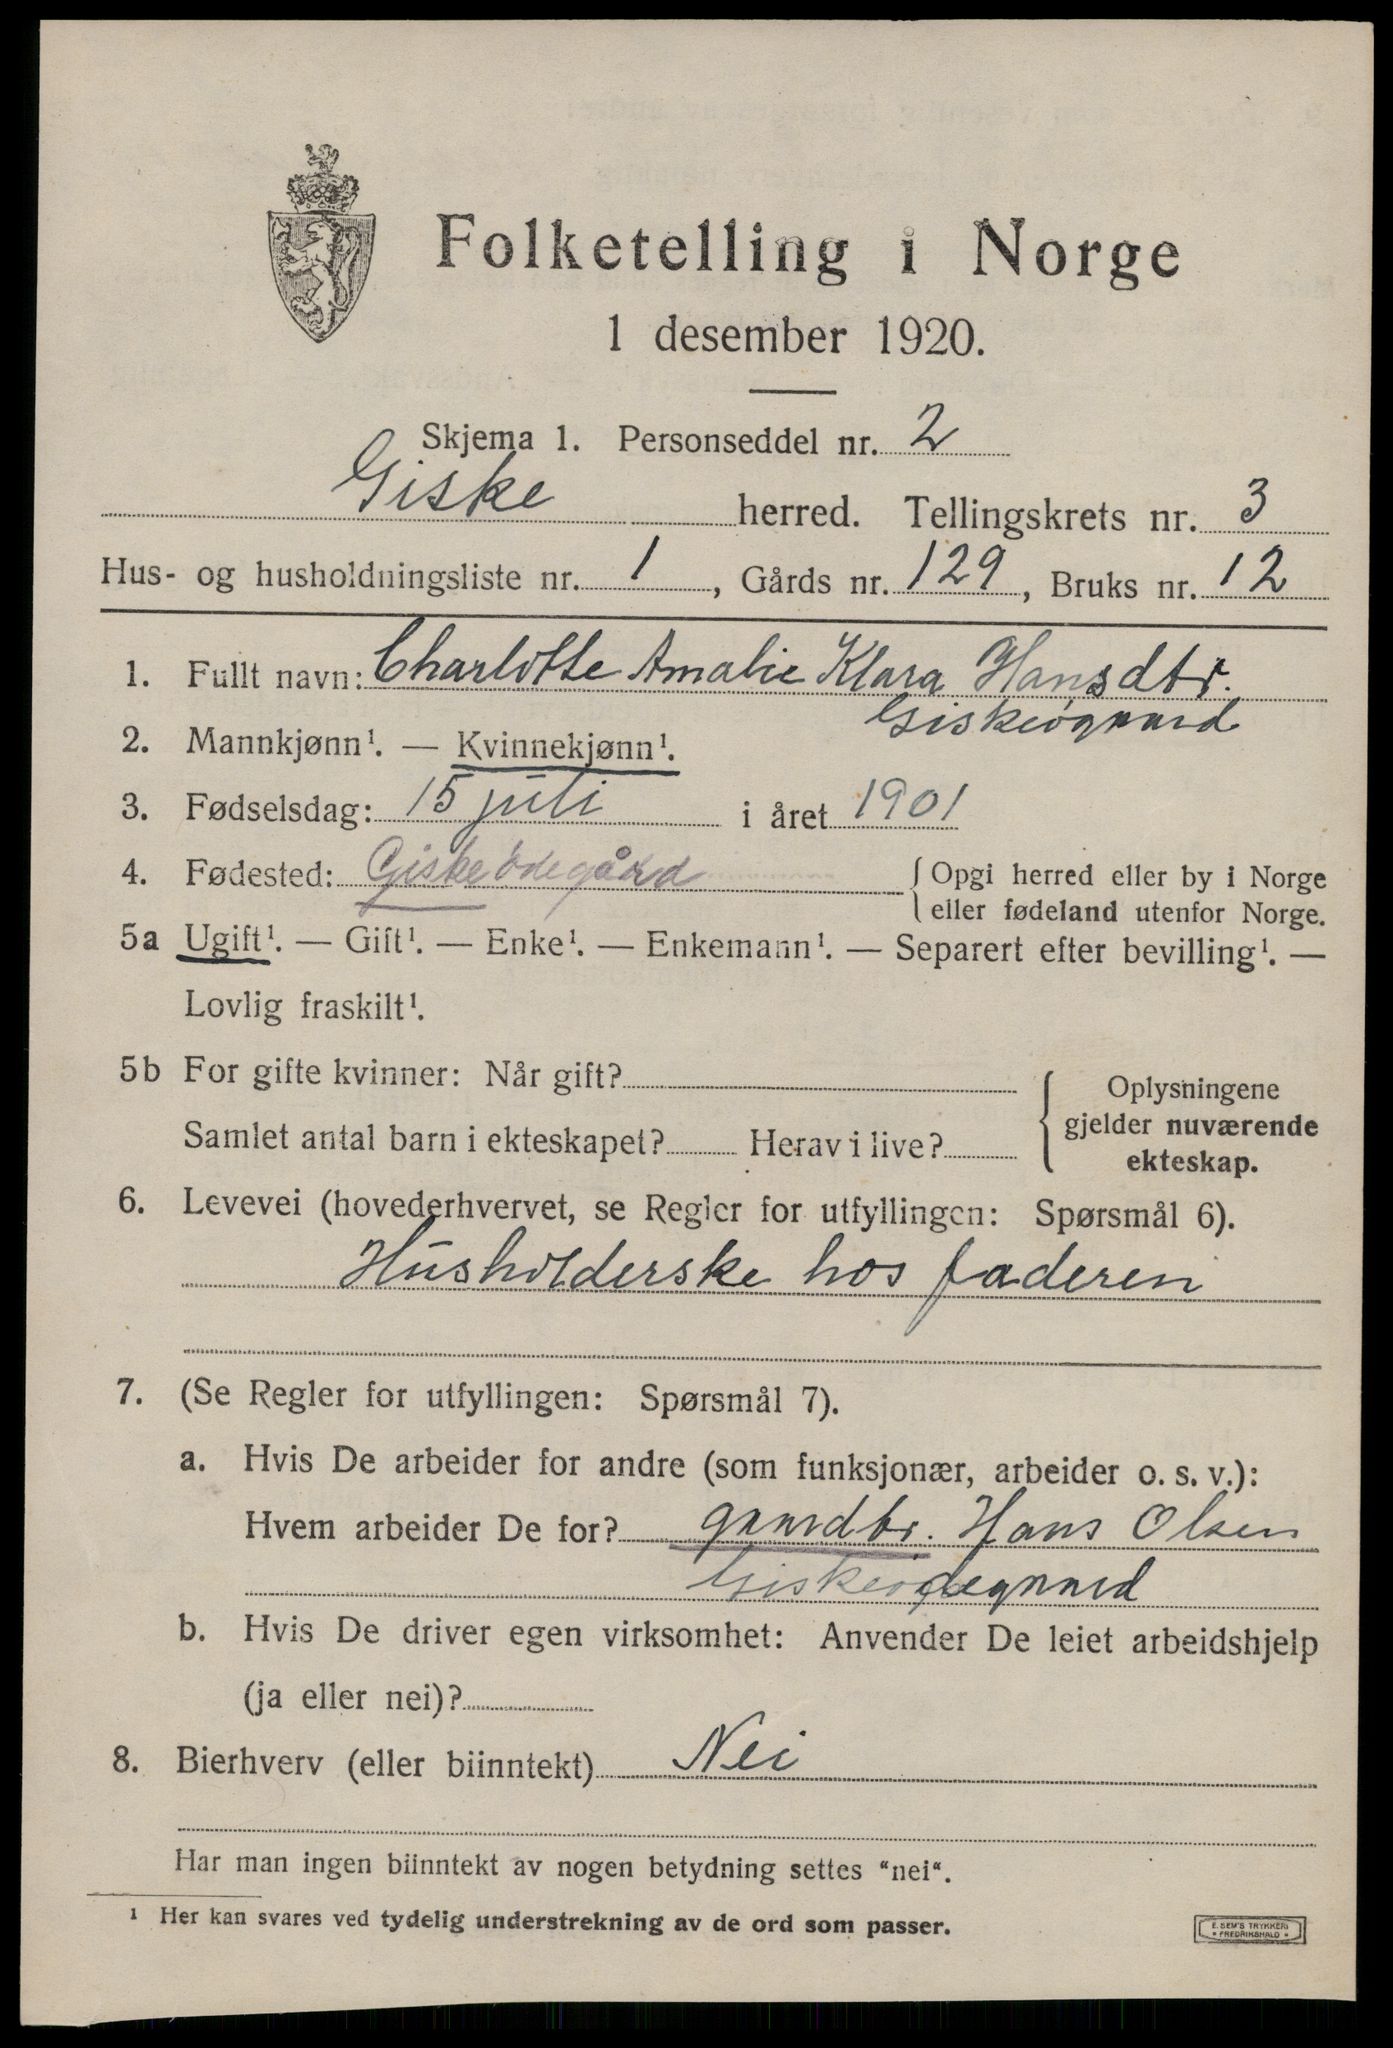 Folketelling i Norge
1 desember 1920.
Skjema 1. Personseddel nr. 2
Giske herred. Tellingskrets nr. 3
Hus- og husholdningsliste nr. 1, Gårds nr. 129, Bruks nr. 12
1. Fullt navn: Charlotte Amalie Klara Hansdtr.
Giskeøgaard
2. Mannkjønn¹. — Kvinnekjønn¹.
3. Fødselsdag: 15 juli i året 1901
4. Fødested: Giskeödegård { Opgi herred eller by i Norge
eller fødeland utenfor Norge.
5a Ugift¹. — Gift¹. — Enke¹. — Enkemann¹. — Separert efter bevilling¹. —
Lovlig fraskilt¹.
5b For gifte kvinner: Når gift? { Oplysningene
gjelder nuværende
Samlet antal barn i ekteskapet? Herav i live?
ekteskap.
6. Levevei (hovederhvervet, se Regler for utfyllingen: Spørsmål 6).
Husholderske hos faderen
7. (Se Regler for utfyllingen: Spørsmål 7).
a. Hvis De arbeider for andre (som funksjonær, arbeider o. s. v.):
Hvem arbeider De for? gaardbr. Hans Olsen
Giskeødegaard
b. Hvis De driver egen virksomhet: Anvender De leiet arbeidshjelp
(ja eller nei)?
8. Bierhverv (eller biinntekt) Nei
Har man ingen biinntekt av nogen betydning settes "nei".
¹ Her kan svares ved tydelig understrekning av de ord som passer.
E. SEM'S TRYKKERI
• FREDRIKSHALD •